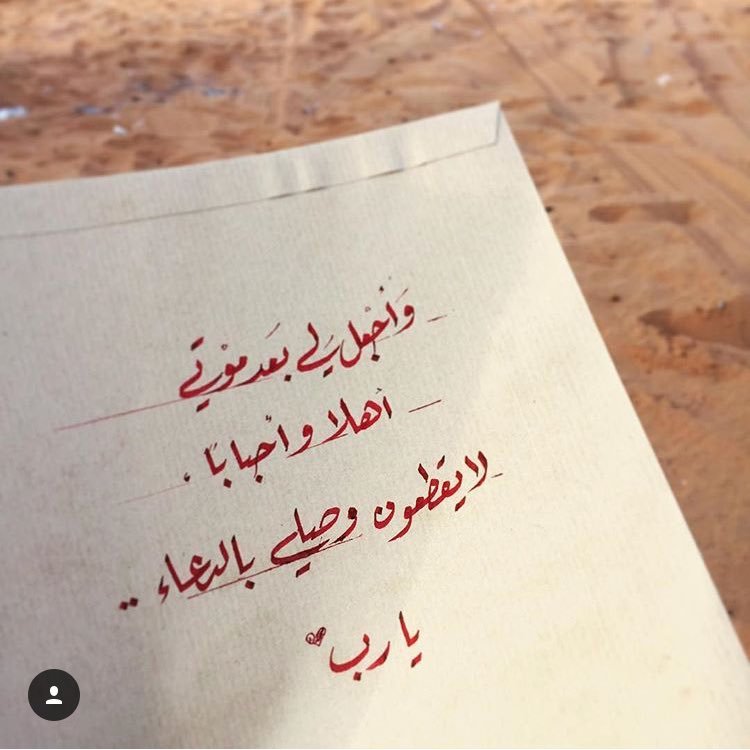 وَأجْعل لي بَعَد موْتي
أهلا وأحبابًا .
لا يقطعون وصلي بالدعاء ..
يا رب